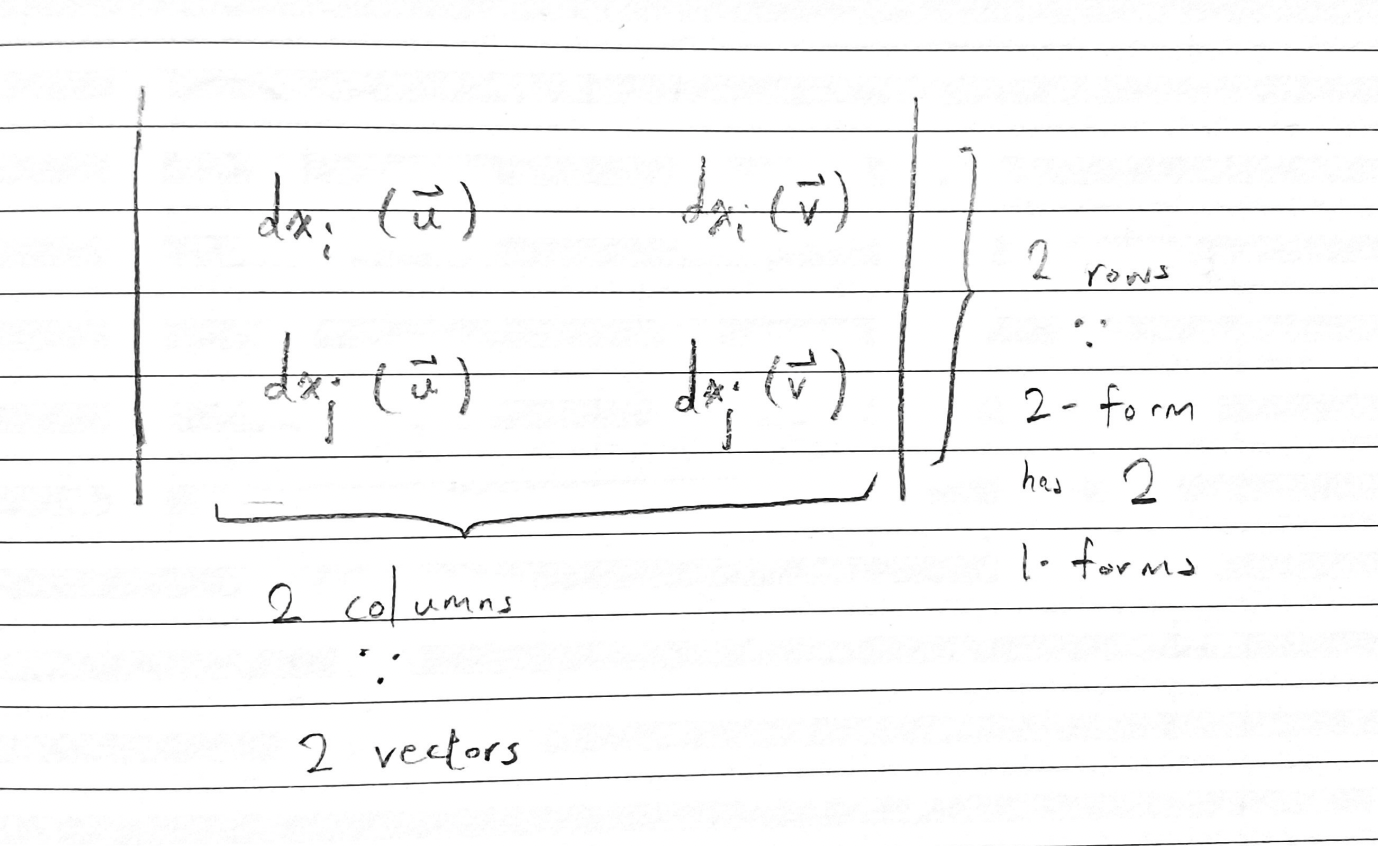 | dxᵢ (u⃗) dxᵢ (v⃗) |
| dxⱼ (u⃗) dxⱼ (v⃗) |
2 rows
∵
2 - form
has 2
1- forms
2 columns
∵
2 vectors